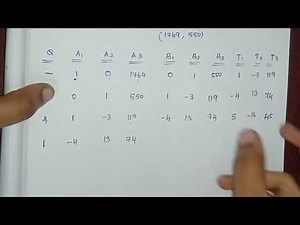 (1769, 550)
Q A1 A2 A3 B1 B2 B3 T1 T2 T3
— 1 0 1769 0 1 550 1 -3 119
0 1 550 1 -3 119 -4 13 74
4 1 -3 119 -4 13 74 5 -16 45
1 -4 13 74